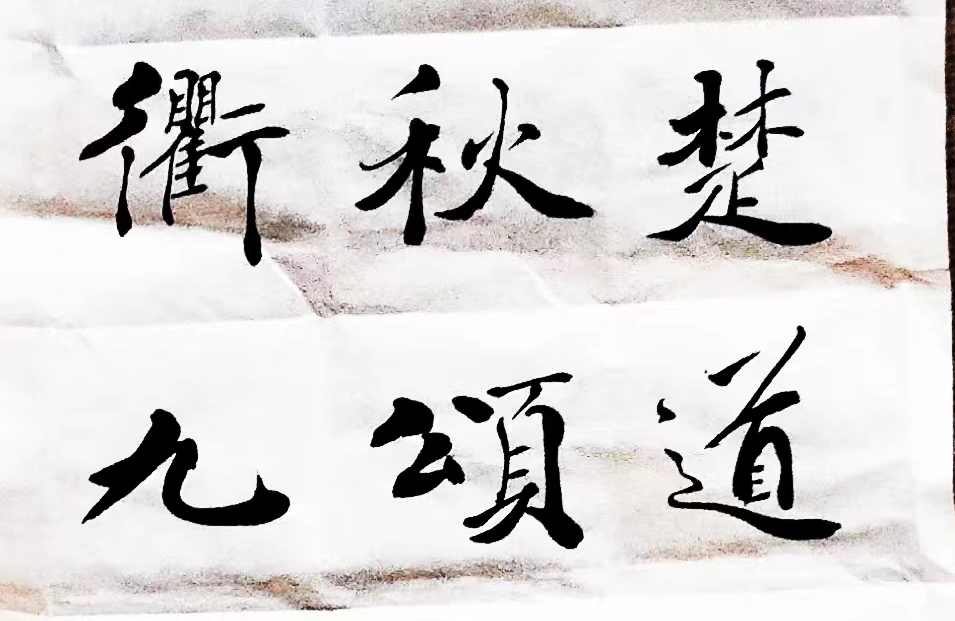 楚道
秋頌
衢九